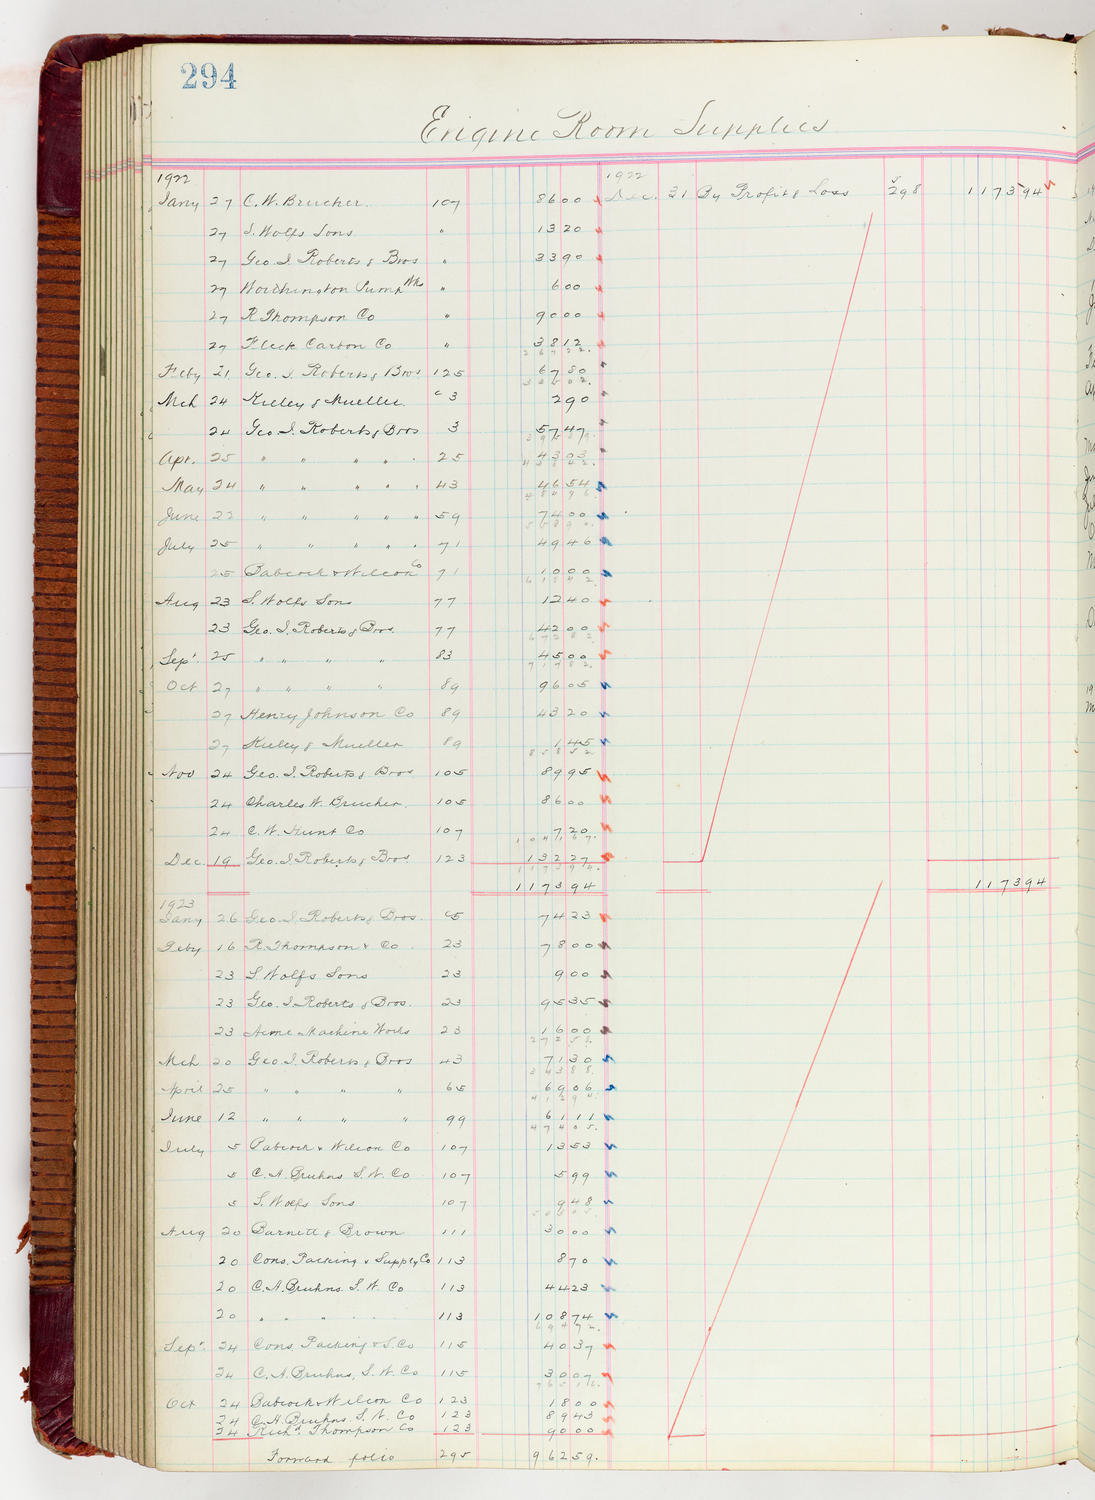 294
Engine Room Supplies
1922
Jany 27 C. W. Brucher. 107 8600
1922
Dec. 31 By Profit & Loss 298 117394
27 S. Wolfs Sons " 1320
27 Geo. I. Roberts & Bros " 3390
27 Worthington Pump Wks " 600
27 R Thompson Co " 9000
27 Fleck Carbon Co " 3812
26722.
Feby 21 Geo. I. Roberts & Bros 125 6780
33502.
Mch 24 Kieley & Mueller c3 290
24 Geo. I. Roberts & Bros 3 5747
39539.
Apr. 25 " " " " . 25 4303
43842.
May 24 " " " " " 43 4654
48496.
June 22 " " " " " 59 7400
55890.
July 25 " " " " . 71 4946
25 Babcock & Wilcox Co 71 1000
61842
Aug 23 S. Wolfs Sons 77 1240
23 Geo. I. Roberts & Bros. 77 4200
67282.
Sept. 25 " " " " 83 4500
71782.
Oct 27 " " " " 89 9605
27 Henry Johnson Co 89 4320
27 Kieley & Mueller 89 145
85852
Nov 24 Geo. I. Roberts & Bros 105 8995
24 Charles W. Brucher. 105 8600
24 C. W. Hunt Co 107 720
104167.
Dec. 19 Geo. I. Roberts & Bros 123 13227
117394.
117394 117394
1923
Jany 26 Geo. I. Roberts & Bros. c5 7423
Feby 16 R. Thompson & Co. 23 7800
23 S. Wolfs Sons 23 900
23 Geo. I. Roberts & Bros. 23 9535
23 Acme Machine Works 23 1600
27258.
Mch 20 Geo. I. Roberts & Bros 43 7130
34388.
April 25 " " " " 65 6906
41294.
June 12 " " " " 99 6111
47405.
July 5 Babcock & Wilcox Co 107 1353
5 C. A. Bruhns S. W. Co 107 599
5 S. Wolfs Sons 107 948
50305.
Aug 20 Barnett & Brown 111 3000
20 Cons. Packing & Supply Co 113 870
20 C. A. Bruhns. S. W. Co 113 4423
20 " " " 113 10874
69472.
Sept. 24 Cons. Packing & S. Co 115 4037
24 C. A. Bruhns, S. W. Co 115 3007
76516.
Oct 24 Babcock & Wilcox Co 123 1800
24 C. A. Bruhns. S. W. Co 123 8943
24 Richd. Thompson Co 123 9000
Forward folio 295 96259.